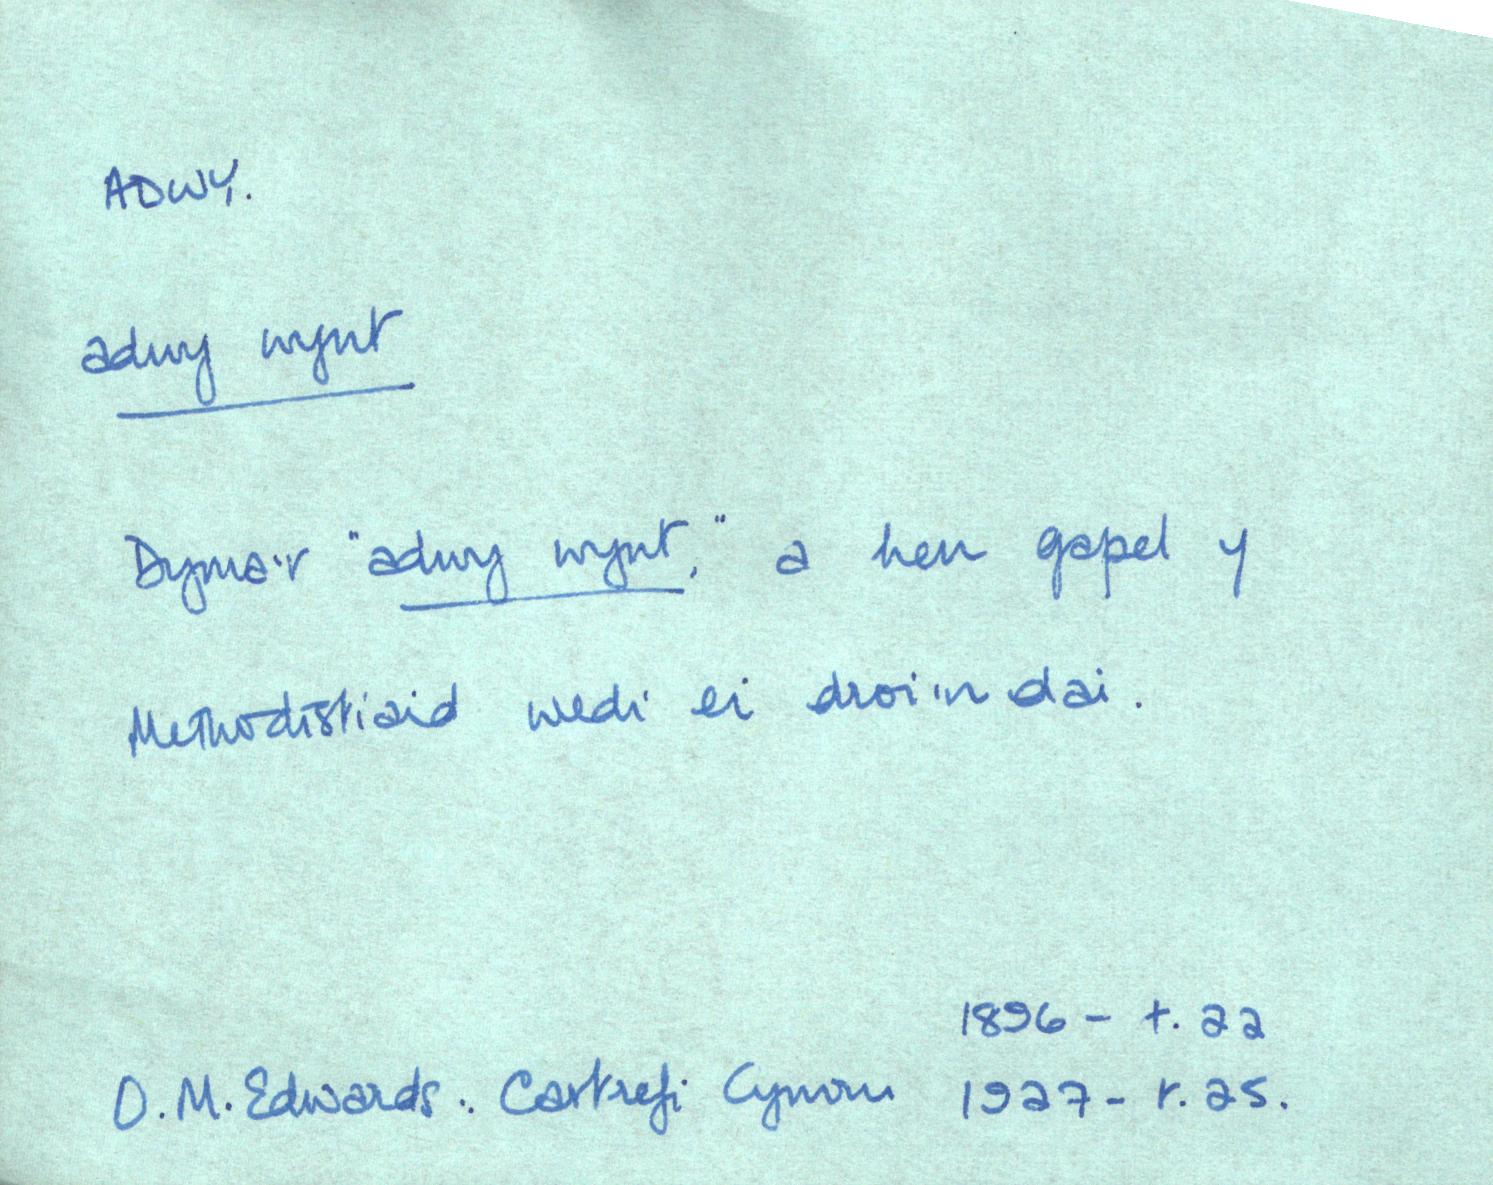 ADWY.
adwy wynt
Dyma'r "adwy wynt," a hen gapel y
Methodistiaid wedi ei droi'n dai.
1896 - t. 22
O. M. Edwards. Cartrefi Cymru 1927 - t. 25.